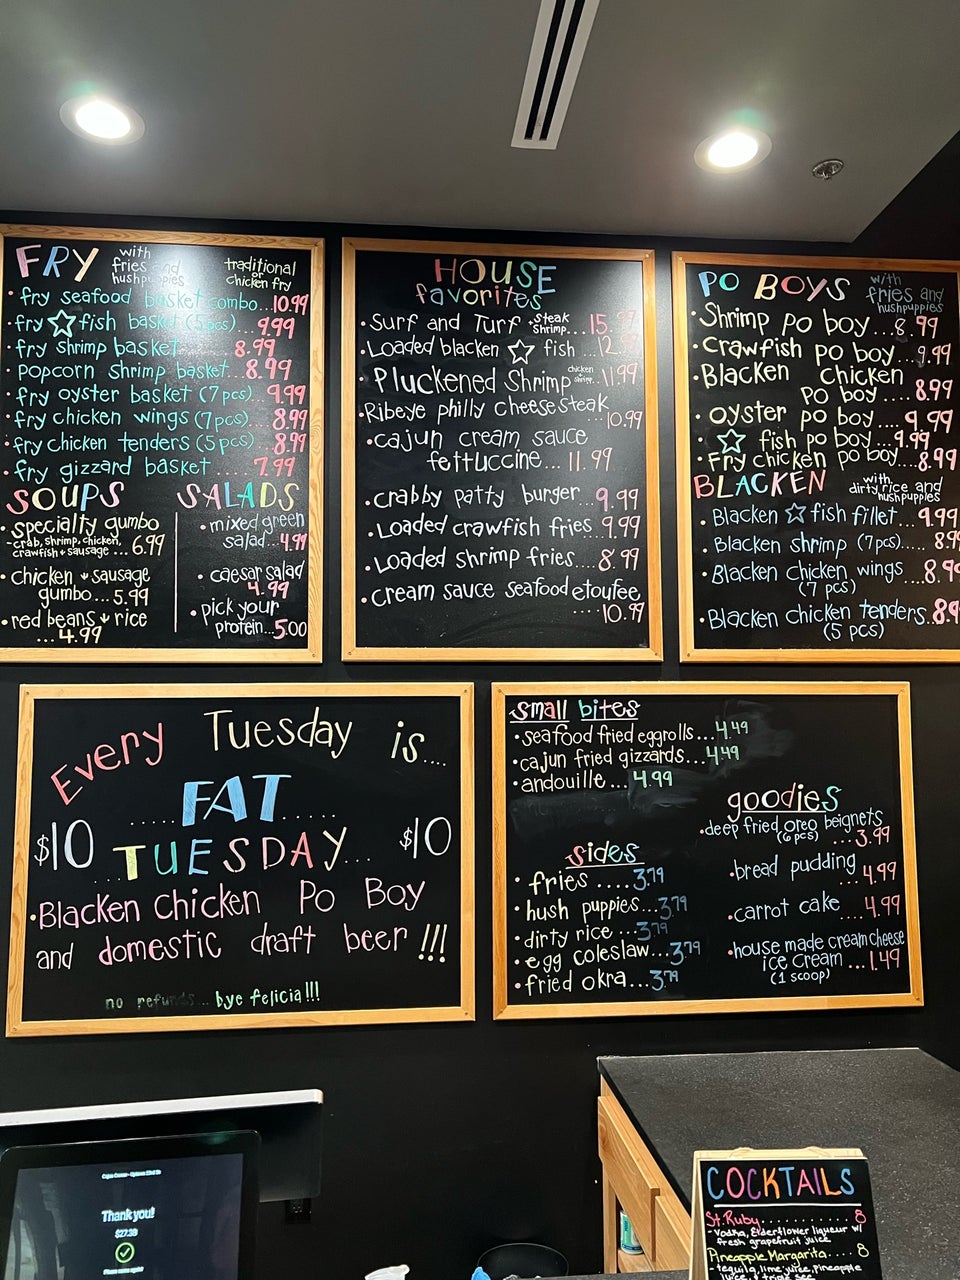 FRY with fries and hushpuppies traditional or chicken fry
• fry seafood basket combo...10.99
• fry ☆ fish basket (5pcs)... 9.99
• fry shrimp basket... 8.99
• popcorn shrimp basket...8.99
• fry oyster basket (7pcs)... 9.99
• fry chicken wings (7pcs)... 8.99
• fry chicken tenders (5pcs) 8.99
• fry gizzard basket ...... 7.99
SOUPS
• specialty gumbo
- crab, shrimp, chicken,
crawfish + sausage ... 6.99
• chicken + sausage
gumbo...5.99
• red beans + rice
... 4.99
SALADS
• mixed green
salad...4.99
• caesar salad
4.99
• pick your
protein...5.00
HOUSE
favorites
• Surf and Turf + steak shrimp...15.
• Loaded blacken ☆ fish ...12.
• Pluckened Shrimp chicken shrimp...11.99
• Ribeye philly cheesesteak
...10.99
• cajun cream sauce
fettuccine... 11.99
• crabby patty burger... 9.99
• Loaded crawfish fries...9.99
• Loaded shrimp fries... 8.99
• cream sauce seafood etoufee
.... 10.99
PO BOYS with fries and hushpuppies
• Shrimp po boy...8.99
• crawfish po boy...9.99
• Blacken chicken
po boy.... 8.99
• oyster po boy.... 9.99
• ☆ fish po boy...9.99
• Fry chicken po boy...8.99
BLACKEN with dirty rice and hushpuppies
• Blacken ☆ fish fillet... 9.99
• Blacken shrimp (7pcs)..... 8.9
• Blacken chicken wings ... 8.9
(7 pcs)
• Blacken chicken tenders..8.9
(5 pcs)
Every Tuesday is....
......FAT......
$10 ...TUESDAY... $10
• Blacken Chicken Po Boy
and domestic draft beer !!!
no refunds... bye felicia!!!
small bites
• seafood fried eggrolls...4.49
• cajun fried gizzards...4.49
• andouille... 4.99
sides
• fries ....3.79
• hush puppies...3.79
• dirty rice ...3.79
• egg coleslaw...3.79
• fried okra...3.79
goodies
• deep fried oreo beignets
(6 pcs) ...3.99
• bread pudding
...4.99
• carrot cake ....4.99
• house made cream cheese
ice cream ...1.49
(1 scoop)
Thank you!
$27.39
COCKTAILS
St. Ruby........... 8
- vodka, Elderflower liqueur w/
fresh grapefruit juice
Pineapple Margarita.... 8
- tequila, lime juice, pineapple